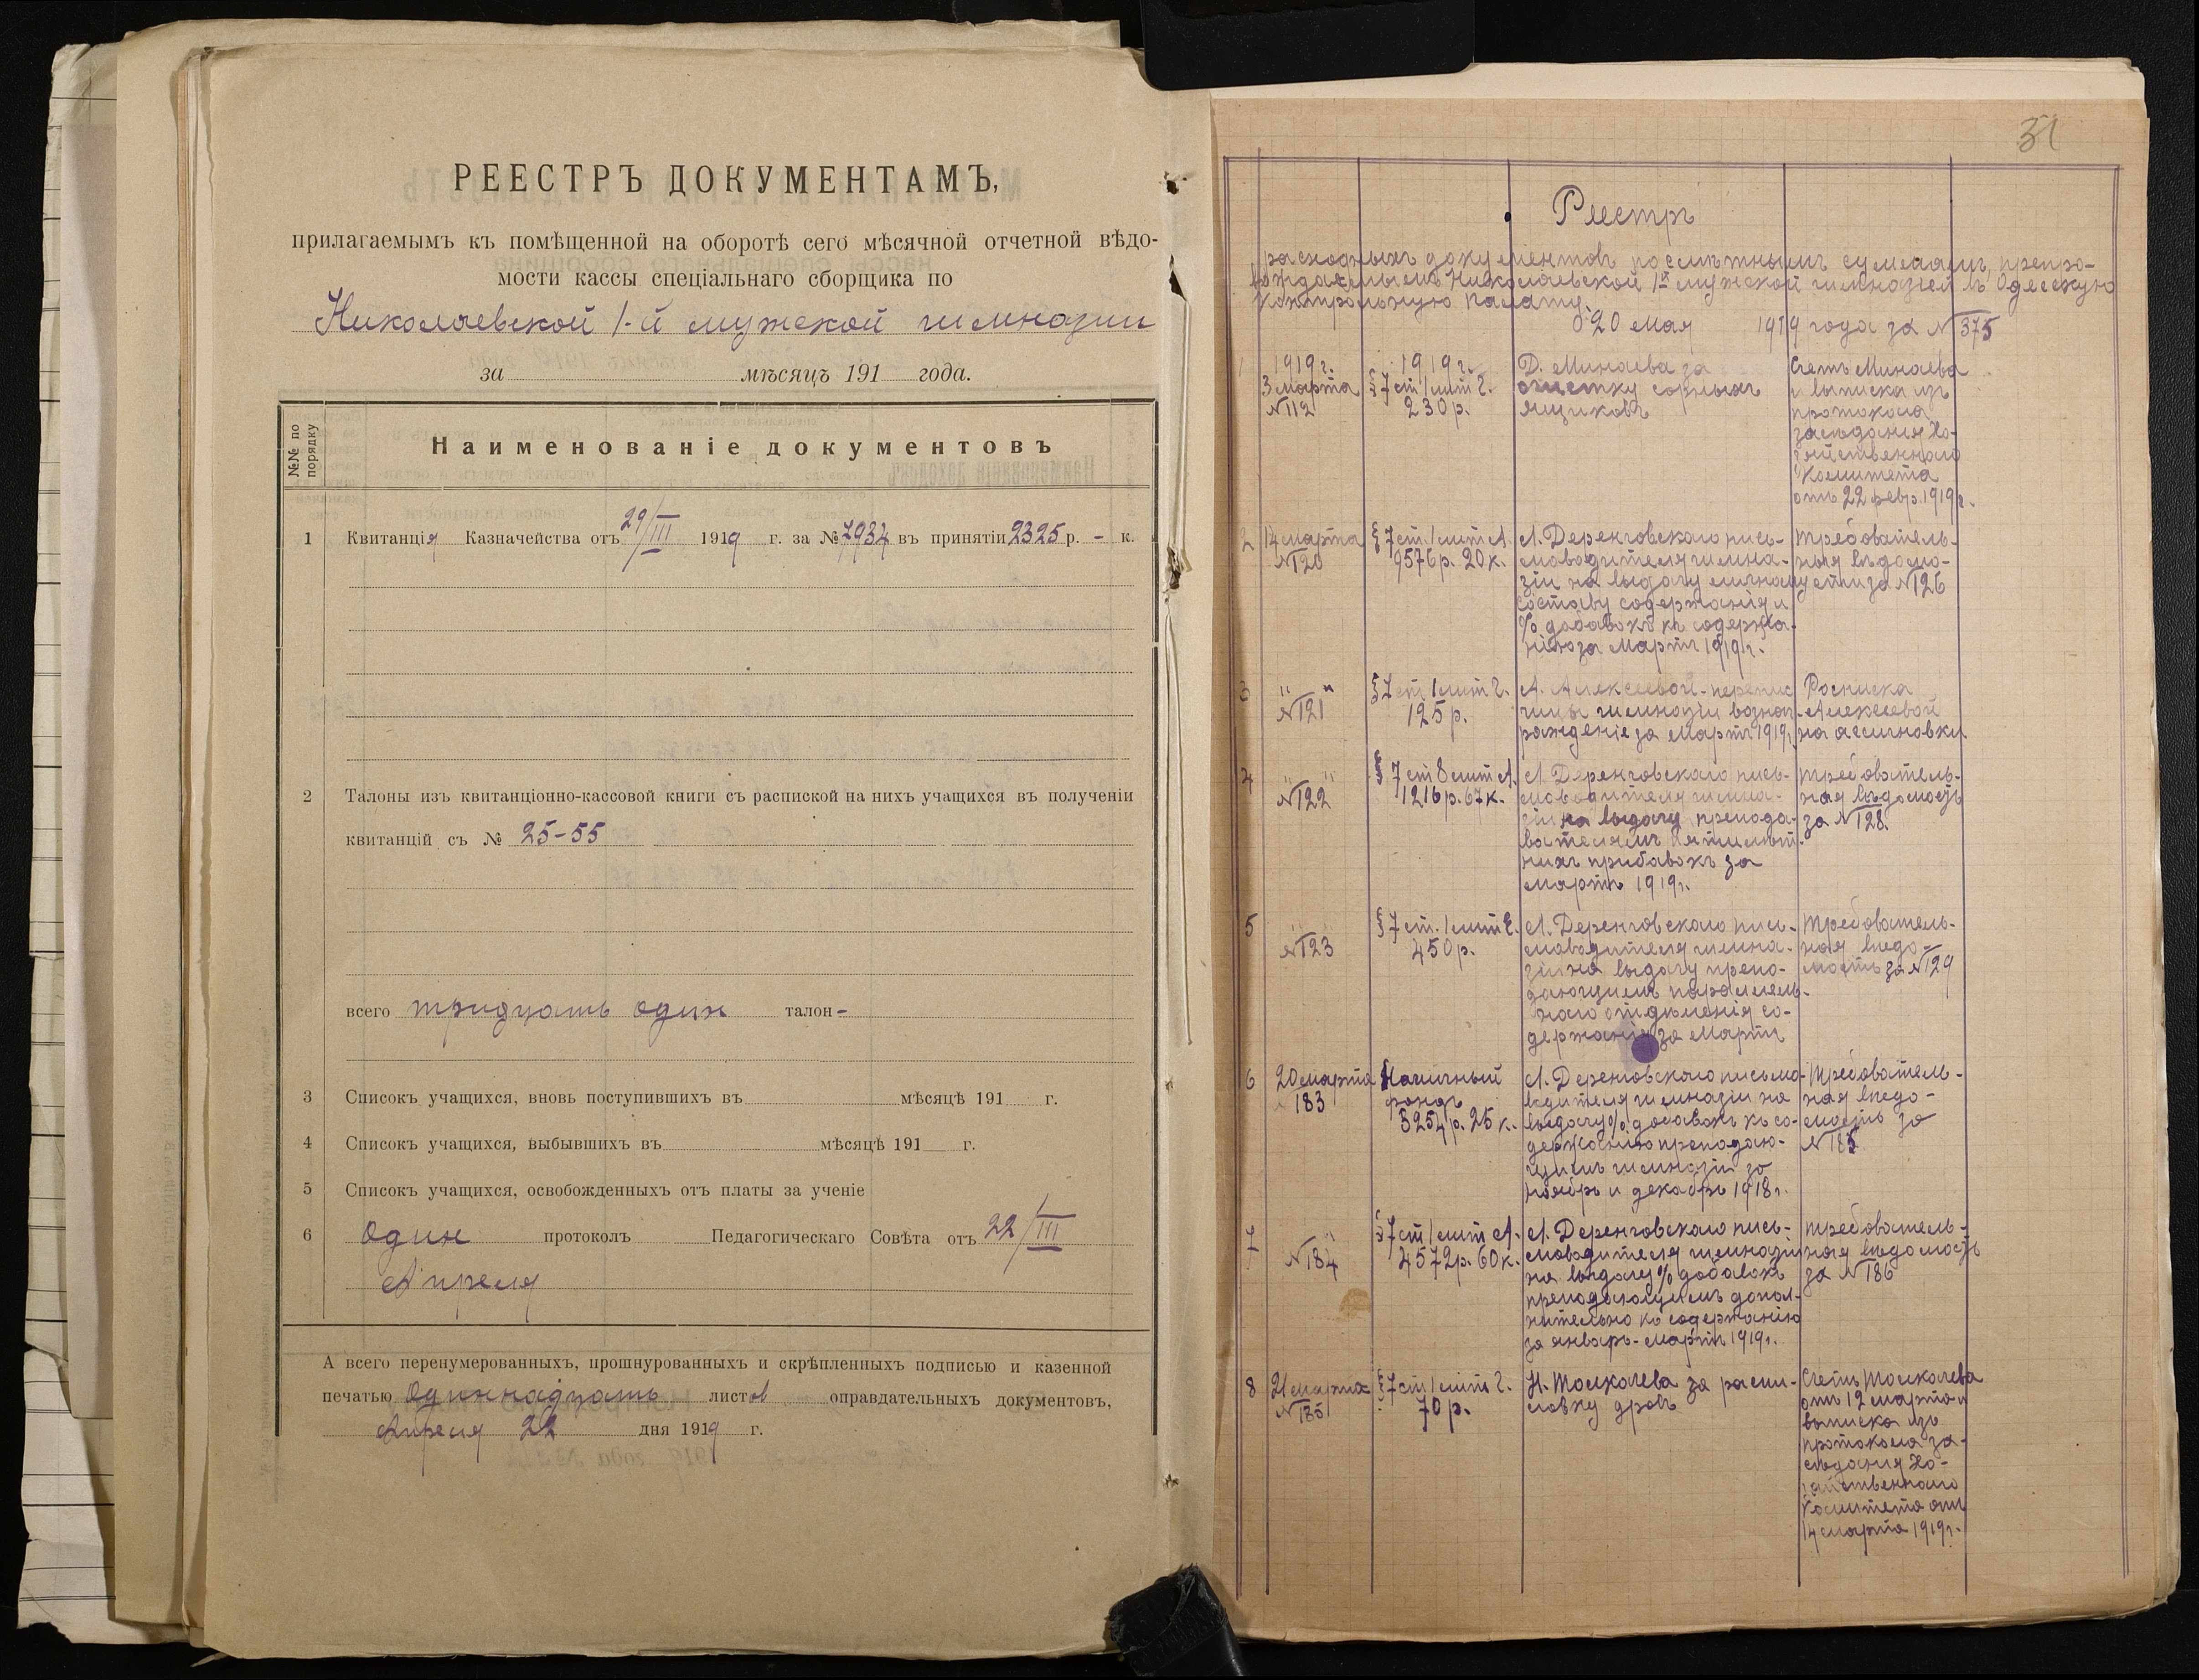 РЕЕСТРЪ ДОКУМЕНТАМЪ,
прилагаемымъ къ помѣщенной на оборотѣ сего мѣсячной отчетной вѣдо-
мости кассы спеціальнаго сборщика по
Николаевской 1-й мужской гимназіи
за мѣсяцъ 191 года.
№№ по порядку
Наименованіе документовъ
1 Квитанція Казначейства отъ 29/III 1919 г. за № 7934 въ принятіи 2325 р. - к.
2 Талоны изъ квитанціонно-кассовой книги съ распиской на нихъ учащихся въ полученіи
квитанцій съ № 25-55
всего тридцать один талон-
3 Списокъ учащихся, вновь поступившихъ въ мѣсяцѣ 191 г.
4 Списокъ учащихся, выбывшихъ въ мѣсяцѣ 191 г.
5 Списокъ учащихся, освобожденныхъ отъ платы за ученіе
6 Один протоколъ Педагогическаго Совѣта отъ 22/III
Апреля
А всего перенумерованныхъ, прошнурованныхъ и скрѣпленныхъ подписью и казенной
печатью Одиннадцать листов оправдательныхъ документовъ,
Апреля 22 дня 1919 г.
31
Реестръ
расходныхъ документовъ по смѣтнымъ суммамъ, препро-
вождаемымъ Николаевской 1й мужской гимназіей въ Одесскую
Контрольную Палату.
20 мая 1919 года за № 375
1 1919 г.
3 марта
№ 112
1919 г.
§ 7 ст 1 лит г.
230 р.
Д. Минаева за
очистку сорныхъ
ящиковъ
Счетъ Минаева
и выписка изъ
протокола
заседания Хо-
зяйственнаго
Комитета
отъ 22 февр. 1919 г.
2 14 марта
№ 120
§ 7 ст. 1 лит А.
9576 р. 20 к.
А. Деренговскаго пись-
моводителя гимна-
зіи на выдачу личному
составу содержанія и
% добавокъ къ содержа-
нію за Мартъ 1919 г.
Требователь-
ныя вѣдомо-
сти за № 126
3 " "
№ 121
§ 7 ст 1 лит г.
125 р.
А. Алексеевой - перепис
чицы гимназіи вознаг-
ражденіе за Мартъ 1919 г.
Росписка
Алексеевой
на ассигновки
4 " "
№ 122
§ 7 ст 8 лит А.
1216 р. 67 к.
А. Деренговскаго пись-
моводителя гимна-
зіи на выдачу препода-
вателямъ пятилѣт-
нихъ прибавокъ за
мартъ 1919 г.
требователь-
ная вѣдомость
за № 128.
5 " "
№ 123
§ 7 ст. 1 лит Е.
450 р.
А. Деренговскаго пись-
моводителя гимна-
зіи на выдачу препо-
дающимъ параллель-
наго отдѣленія со-
держанія за Мартъ
Требователь-
ная вѣдо-
мость за № 129
6 20 марта
183
Наличный
фондъ
3254 р. 25 к.
А. Деренговскаго письмо-
водителя гимназіи на
выдачу % добавокъ къ со-
держанію преподаю-
щимъ гимназіи за
ноябрь и декабрь 1918 г.
Требователь-
ная вѣдо-
мость за
№ 185
7 "
№ 184
§ 7 ст 1 лит А.
4572 р. 60 к.
А. Деренговскаго пись-
моводителя гимназіи
на выдачу % добавокъ
преподающимъ допол-
нительно къ содержанію
за январь - мартъ 1919 г.
требователь-
ная вѣдомость
за № 186
8 21 марта
№ 185
§ 7 ст 1 лит г.
70 р.
Н. Москалева за распи-
ловку дровъ
Счетъ Москалева
отъ 12 марта и
выписка изъ
протокола за-
сѣдания Хо-
зяйственнаго
Комитета отъ
14 марта 1919 г.